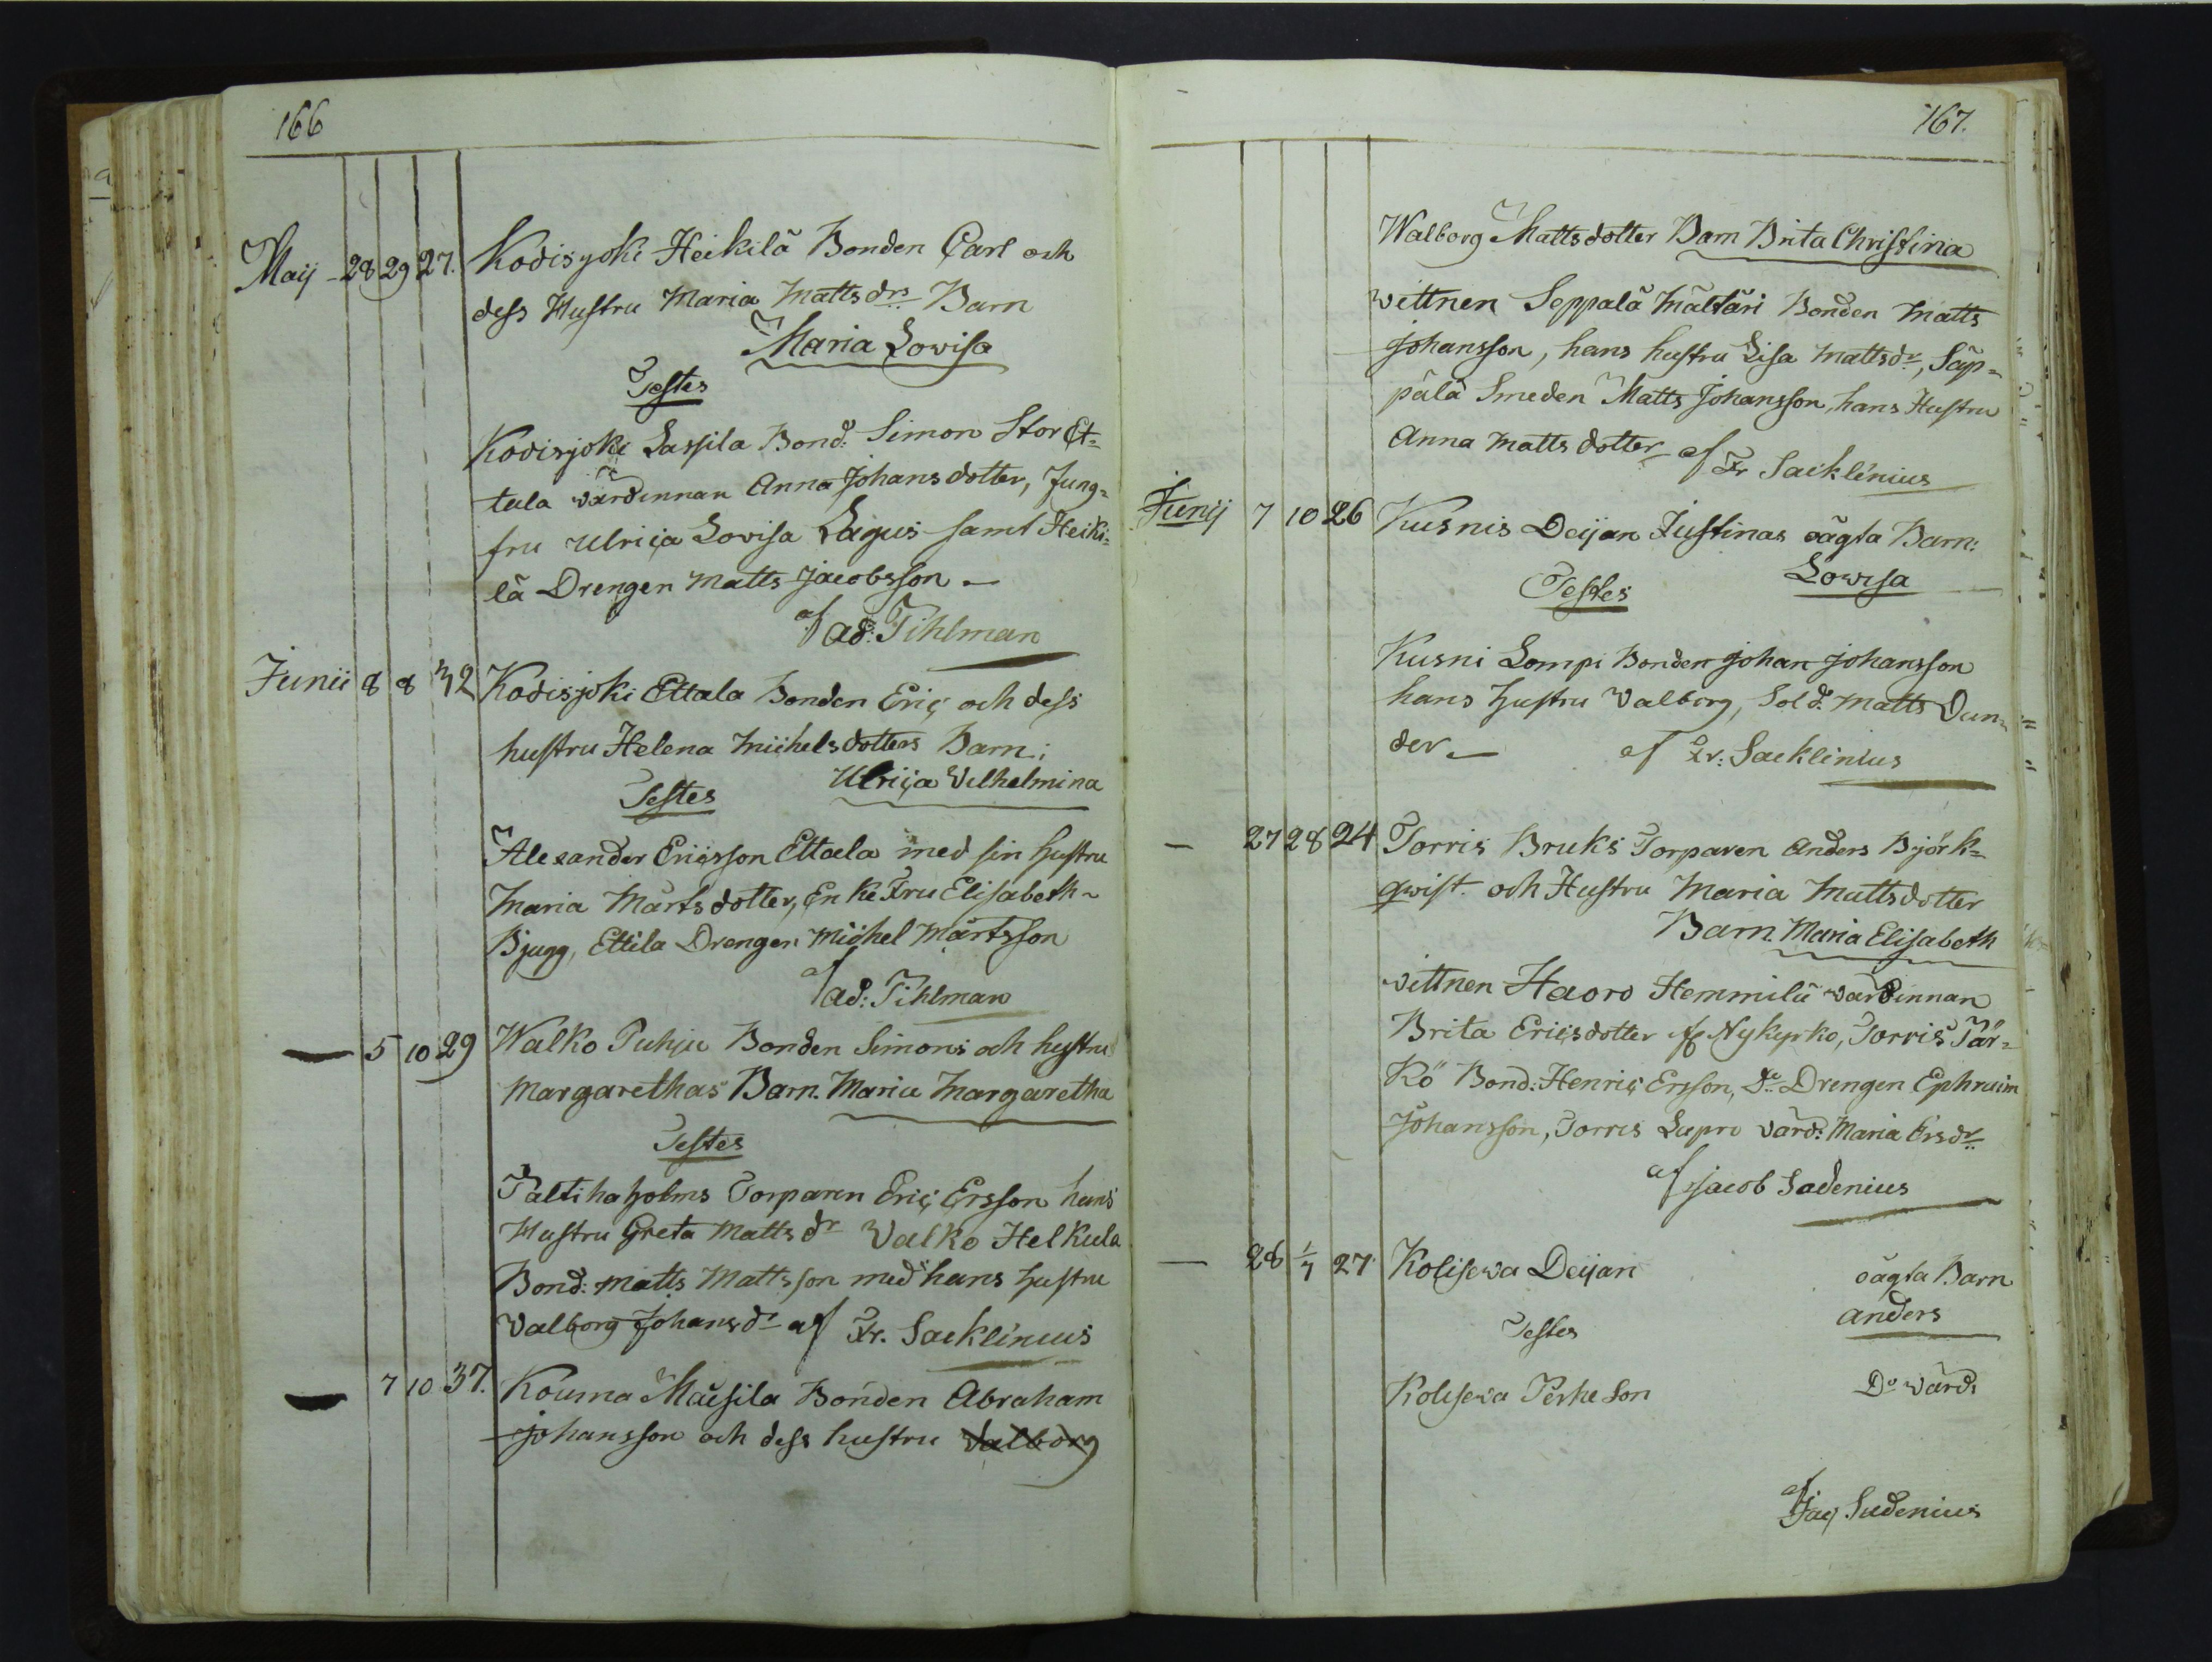 166
Maij - 28 29 27. Kodisjoki Heikilä Bonden Carl och
dess Hustru Maria Mattsdrs Barn
Maria Lovisa
Testes
Kodisjoki Lassila Bond: Simon Stor Et-
tala värdinnan Anna Johansdotter, Jung-
fru Ulrica Lovisa Lagus samt Heiki-
lä Drengen Matts Jacobsson -
af Ad: Tihlman
Junii 8 8 32 Kodisjoki Ettala Bonden Eric och dess
hustru Helena Michelsdotters Barn:
Ulrica Vilhelmina
Testes
Alexander Ericsson Ettala med sin hustru
Maria Märtsdotter, Enke Fru Elisabeth
Bjugg, Ettila Drengen Michel Märtsson
af Ad: Tihlman
— 5 10 29 Walko Puhju Bonden Simons och hustru
Margarethas Barn. Maria Margaretha
Testes
Paltihaholms Torparen Eric Ersson hans
Hustru Greta Mattsdr Valko Helkula
Bond: Matts Mattsson med hans hustru
Valborg Johansdr af Fr. Sacklinius
— 7 10 37. Kouma Maisila Bonden Abraham
Johansson och dess hustru Valborg
167.
Walborg Mattsdotter Barn Brita Christina
vittnen Seppälä Mältäri Bonden Matts
Johansson, hans hustru Lisa Mattsdr, Säp-
pälä Smeden Matts Johansson, hans Hustru
Anna Mattsdotter af Fr Sacklinius
Junij 7 10 26 Kusnis Deijan Justinas oägta Barn:
Lowisa
Testes
Kusni Lompi Bonden Johan Johansson
hans hustru Valborg, Sold. Matts Dun-
der - af Fr: Sacklinius
— 27 28 24 Torris Bruks Torparen Anders Björk-
qwist och Hustru Maria Mattsdotter
Barn. Maria Elisabeth
vittnen Haoro Hemmilä värdinnan
Brita Ericsdotter af Nykyrko, Torris Pär-
kö Bond: Henric Ersson, Do Drengen Ephraim
Johansson, Torris Lapro värd: Maria Ersdr
af Jacob Sadenius
— 28 1/7 27 Kolisewa Deijan oägta Barn
Anders
Testes
Kolisewa Perhe Son Do värd:
af Jac Sudenius